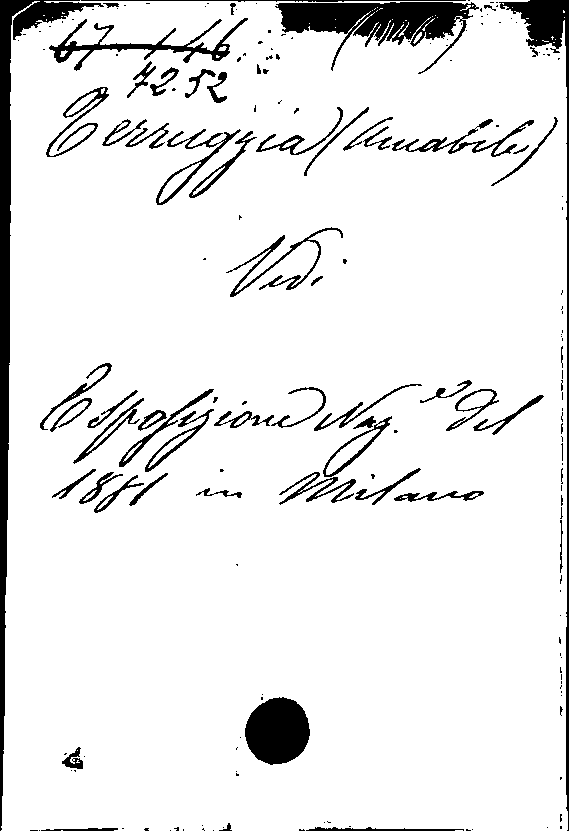 67. 146 (1146)
72.52
Terruggia (Amabile)
Vedi
Esposizione Naz.e del
1881 in Milano